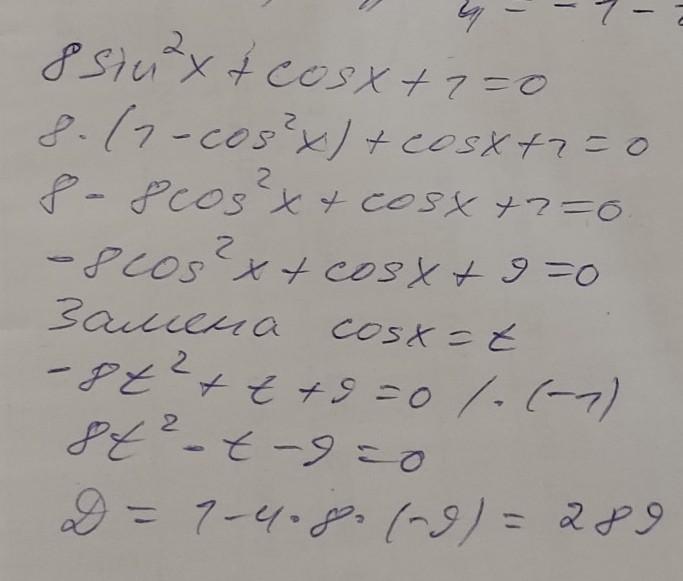 y = - 1 -
8sin²x + cosx + 1 = 0
8·(1 - cos²x) + cosx + 1 = 0
8 - 8cos²x + cosx + 1 = 0
-8cos²x + cosx + 9 = 0
Замена cosx = t
-8t² + t + 9 = 0 /·(-1)
8t² - t - 9 = 0
D = 1 - 4·8·(-9) = 289